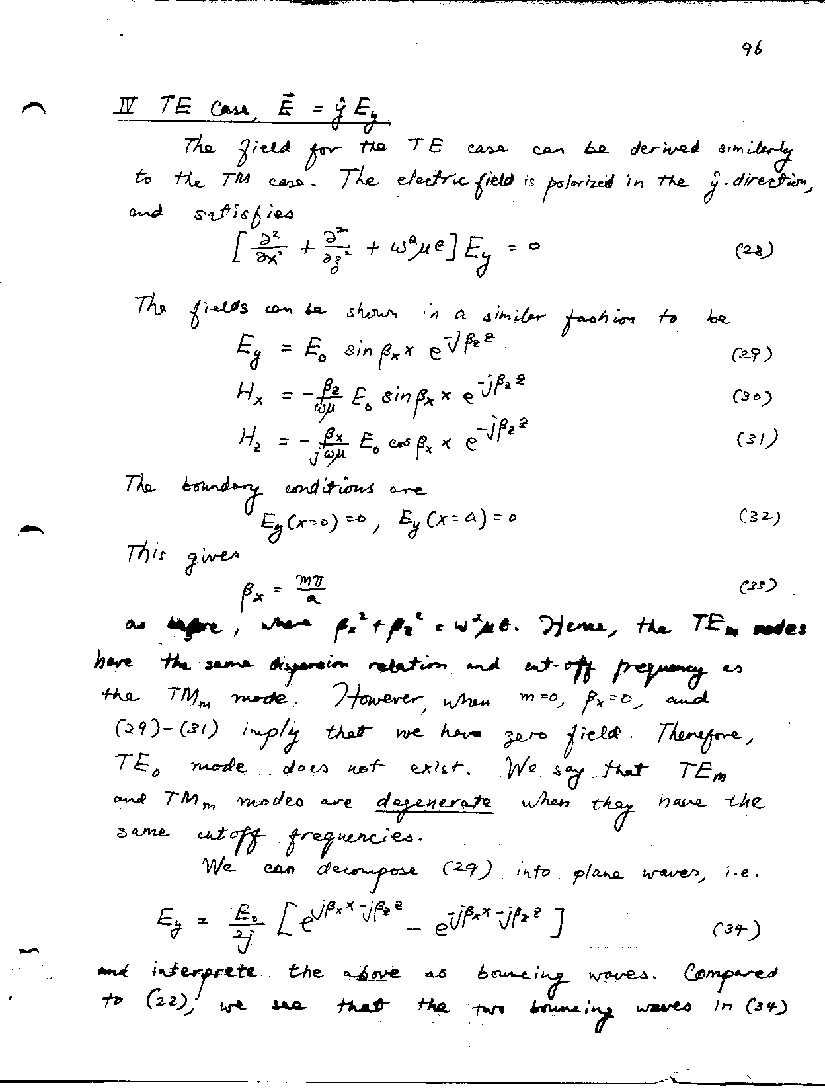 96
IV TE Case, E⃗ = ŷ E_y
The field for the TE case can be derived similarly
to the TM case. The electric field is polarized in the ŷ-direction,
and satisfies
[∂²/∂x² + ∂²/∂z² + ω²με] E_y = 0 (28)
The fields can be shown in a similar fashion to be
E_y = E_0 sin β_x x e^{-jβ_z z} (29)
H_x = -β_z/ωμ E_0 sin β_x x e^{-jβ_z z} (30)
H_z = -β_x/jωμ E_0 cos β_x x e^{-jβ_z z} (31)
The boundary conditions are
E_y(x=0)=0, E_y(x=a)=0 (32)
This gives
β_x = mπ/a (33)
as before, where β_x² + β_z² = ω²με. Hence, the TE_m modes
have the same dispersion relation and cut-off frequency as
the TM_m mode. However, when m=0, β_x=0, and
(29)-(31) imply that we have zero field. Therefore,
TE_0 mode does not exist. We say that TE_m
and TM_m modes are degenerate when they have the
same cutoff frequencies.
We can decompose (29) into plane waves, i.e.
E_y = E_0/2j [e^{jβ_x x - jβ_z z} - e^{-jβ_x x - jβ_z z}] (34)
and interprete the above as bouncing waves. Compared
to (22), we see that the two bouncing waves in (34)